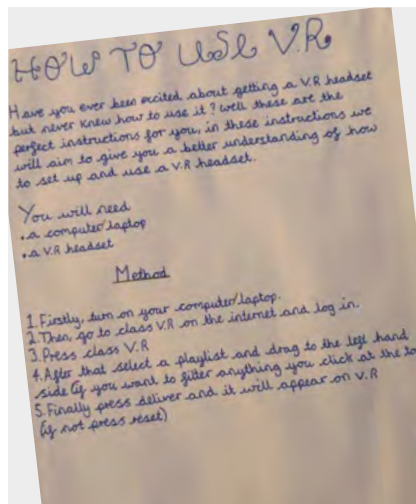 HOW TO USE V.R
Have you ever been excited about getting a V.R headset
but never knew how to use it? well these are the
perfect instructions for you, in these instructions we
will aim to give you a better understanding of how
to set up and use a V.R headset.
You will need
• a computer/laptop
• a V.R headset
Method
1. Firstly, turn on your computer/laptop.
2. Then, go to class V.R on the internet and log in.
3. Press class V.R
4. After that select a playlist and drag to the left hand
side (if you want to filter anything you click at the to
5. Finally press deliver and it will appear on V.R
(if not press reset)